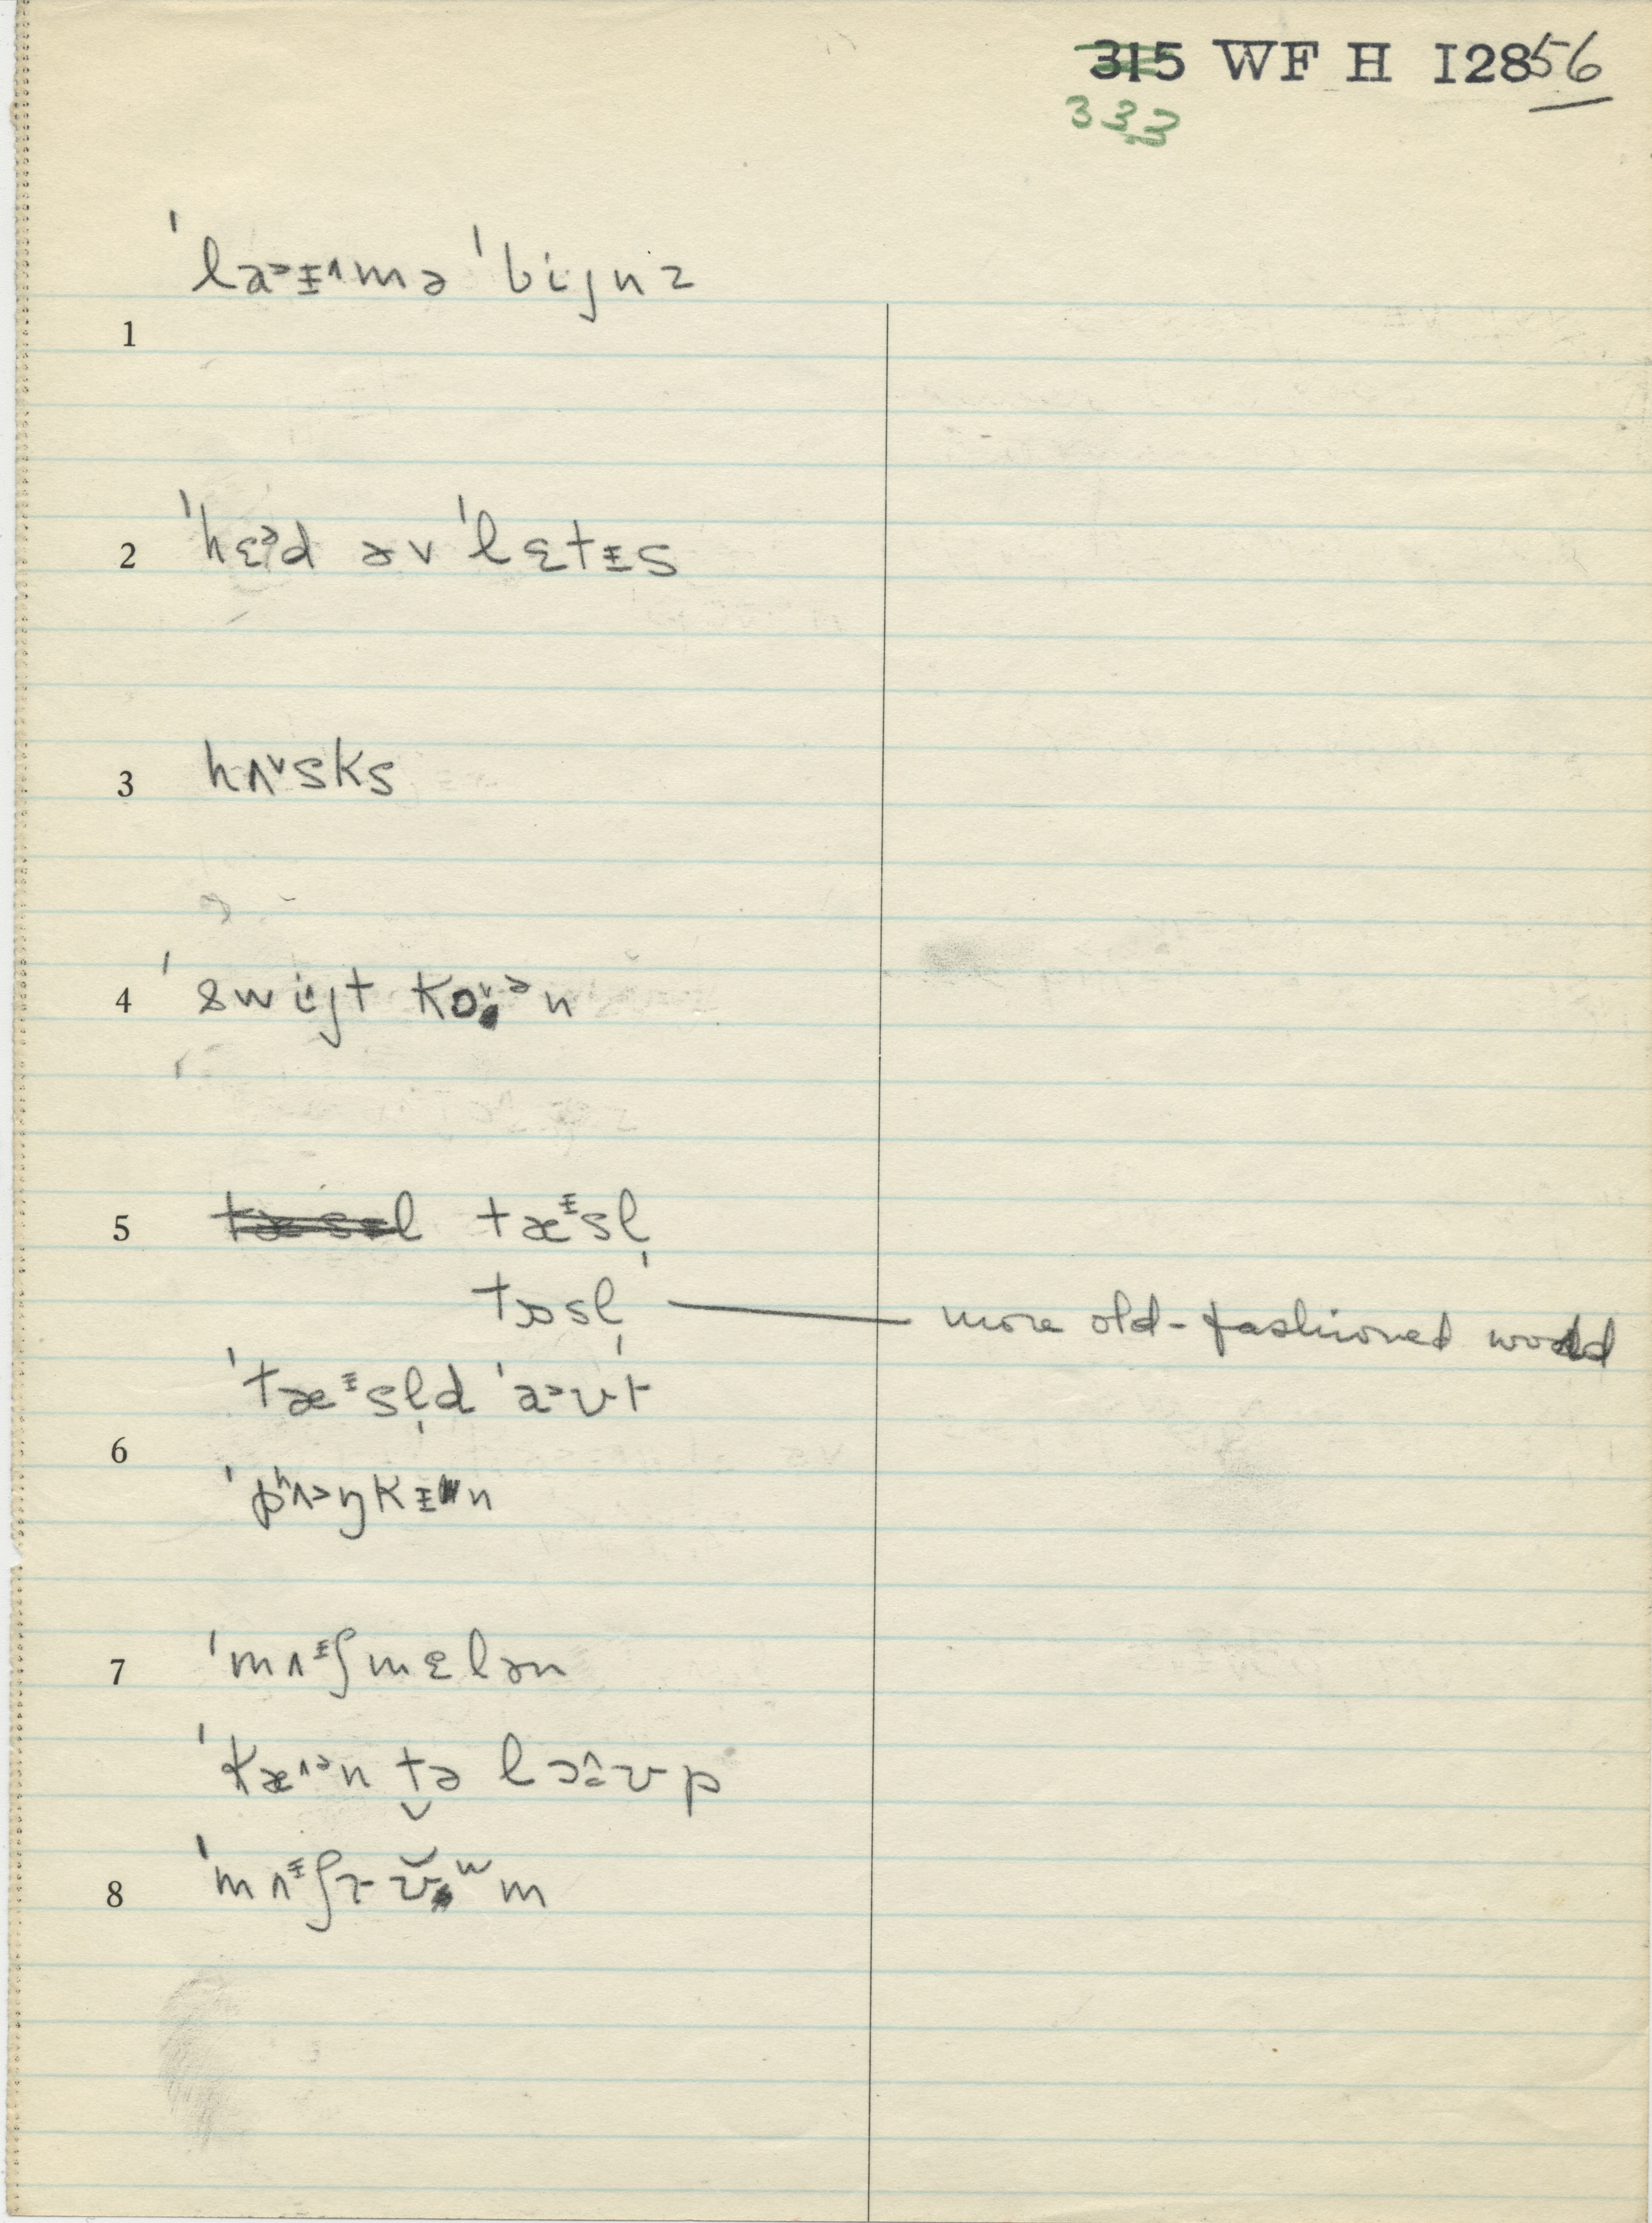 315 WF H I2856
333
ˈlaᵊɪ̵^mə ˈbijnz
1
2 ˈhɛᵊd əv ˈlɛtɪ̵s
3 hʌˇsks
4 ˈswijt kɒˇᵊn
5 tæsɪ̵l tæᶤsl̩
tɒsl̩ — more old-fashioned word
ˈtæᶤsl̩d ˈa>ʊt
6
ˈpʰʌ>ŋkɪ̵n
7 ˈmʌᶤʃmɛlən
ˈkæ^ᵊn tə
8 ˈmʌᶤʃrʊ̆ʷm